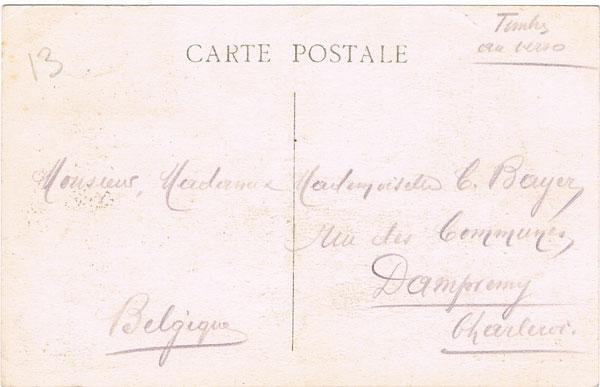 CARTE POSTALE
Timbre
au verso
13
Monsieur, Madame & Mademoiselle C. Bayer,
Rue des Communes,
Dampremy
Charleroi.
Belgique